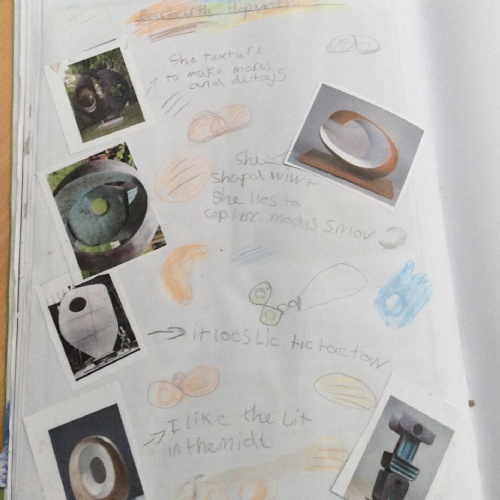 She texture
to make marcs
and detayS
She
shapd wiwt
She lies to
cop here modls Smov
It locs Lic tictactow
I Like the Lit
in the midt